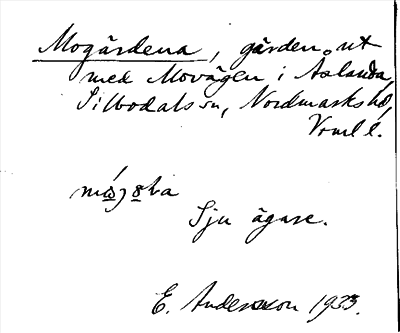 Mogärdena, gärden ut
med Movägen i Åslanda,
Silbodals sn, Nordmarks hd,
Vrml l.
Sju ägare.
E. Andersson 1933.